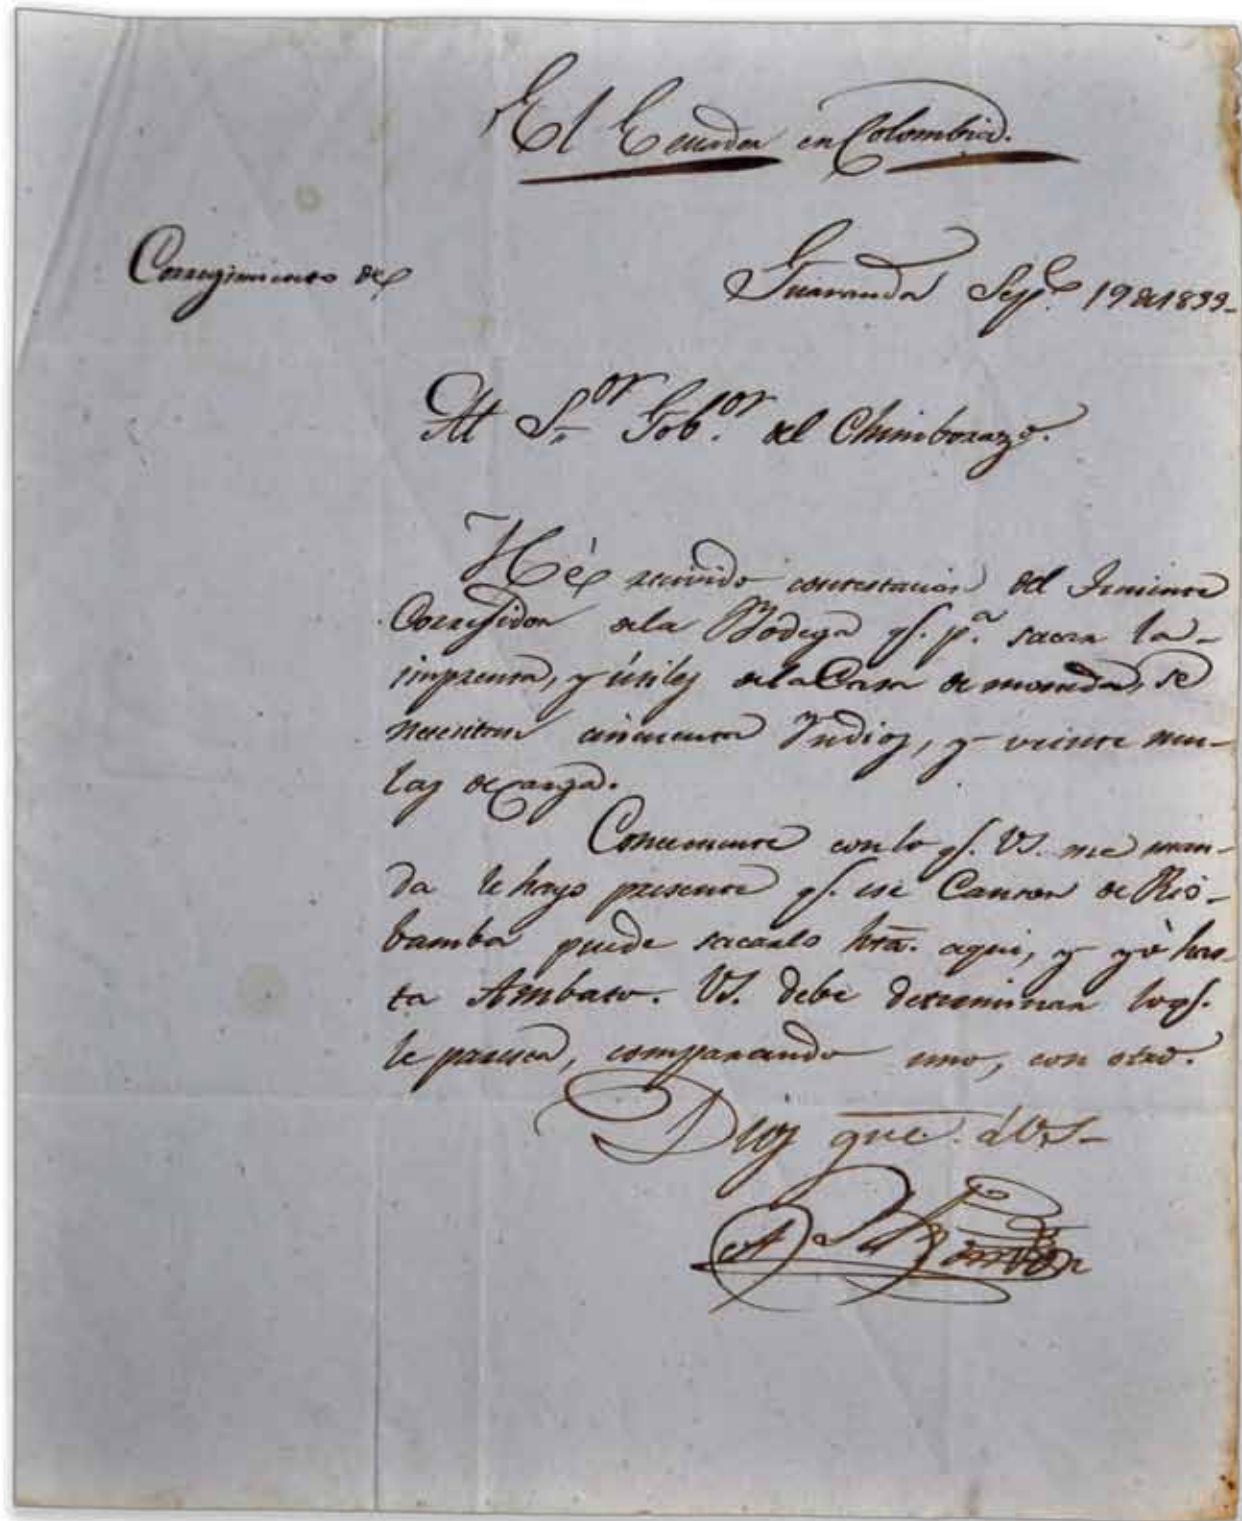 El Ecuador en Colombia.
Corregimiento de
Guaranda Sepe. 19 de 1833-
Al Sor. Gobor. del Chimborazo.
Hé recivido contestacion del Teniente
Corregidor dela Bodega qe. pa. sacar la-
imprenta, y útiles dela Casa de moneda, se
necesitan cincuenta Yndios, y veinte mu-
las de carga.
Concerniente con lo qe. VS. me man-
da le hago presente qe. ese Canton de Rio-
bamba puede sacarlo hta. aqui, y yó has-
ta Ambato. VS. debe determinar loqe.
le paresca, comparando uno, con otro.
Dios gue. á VS-